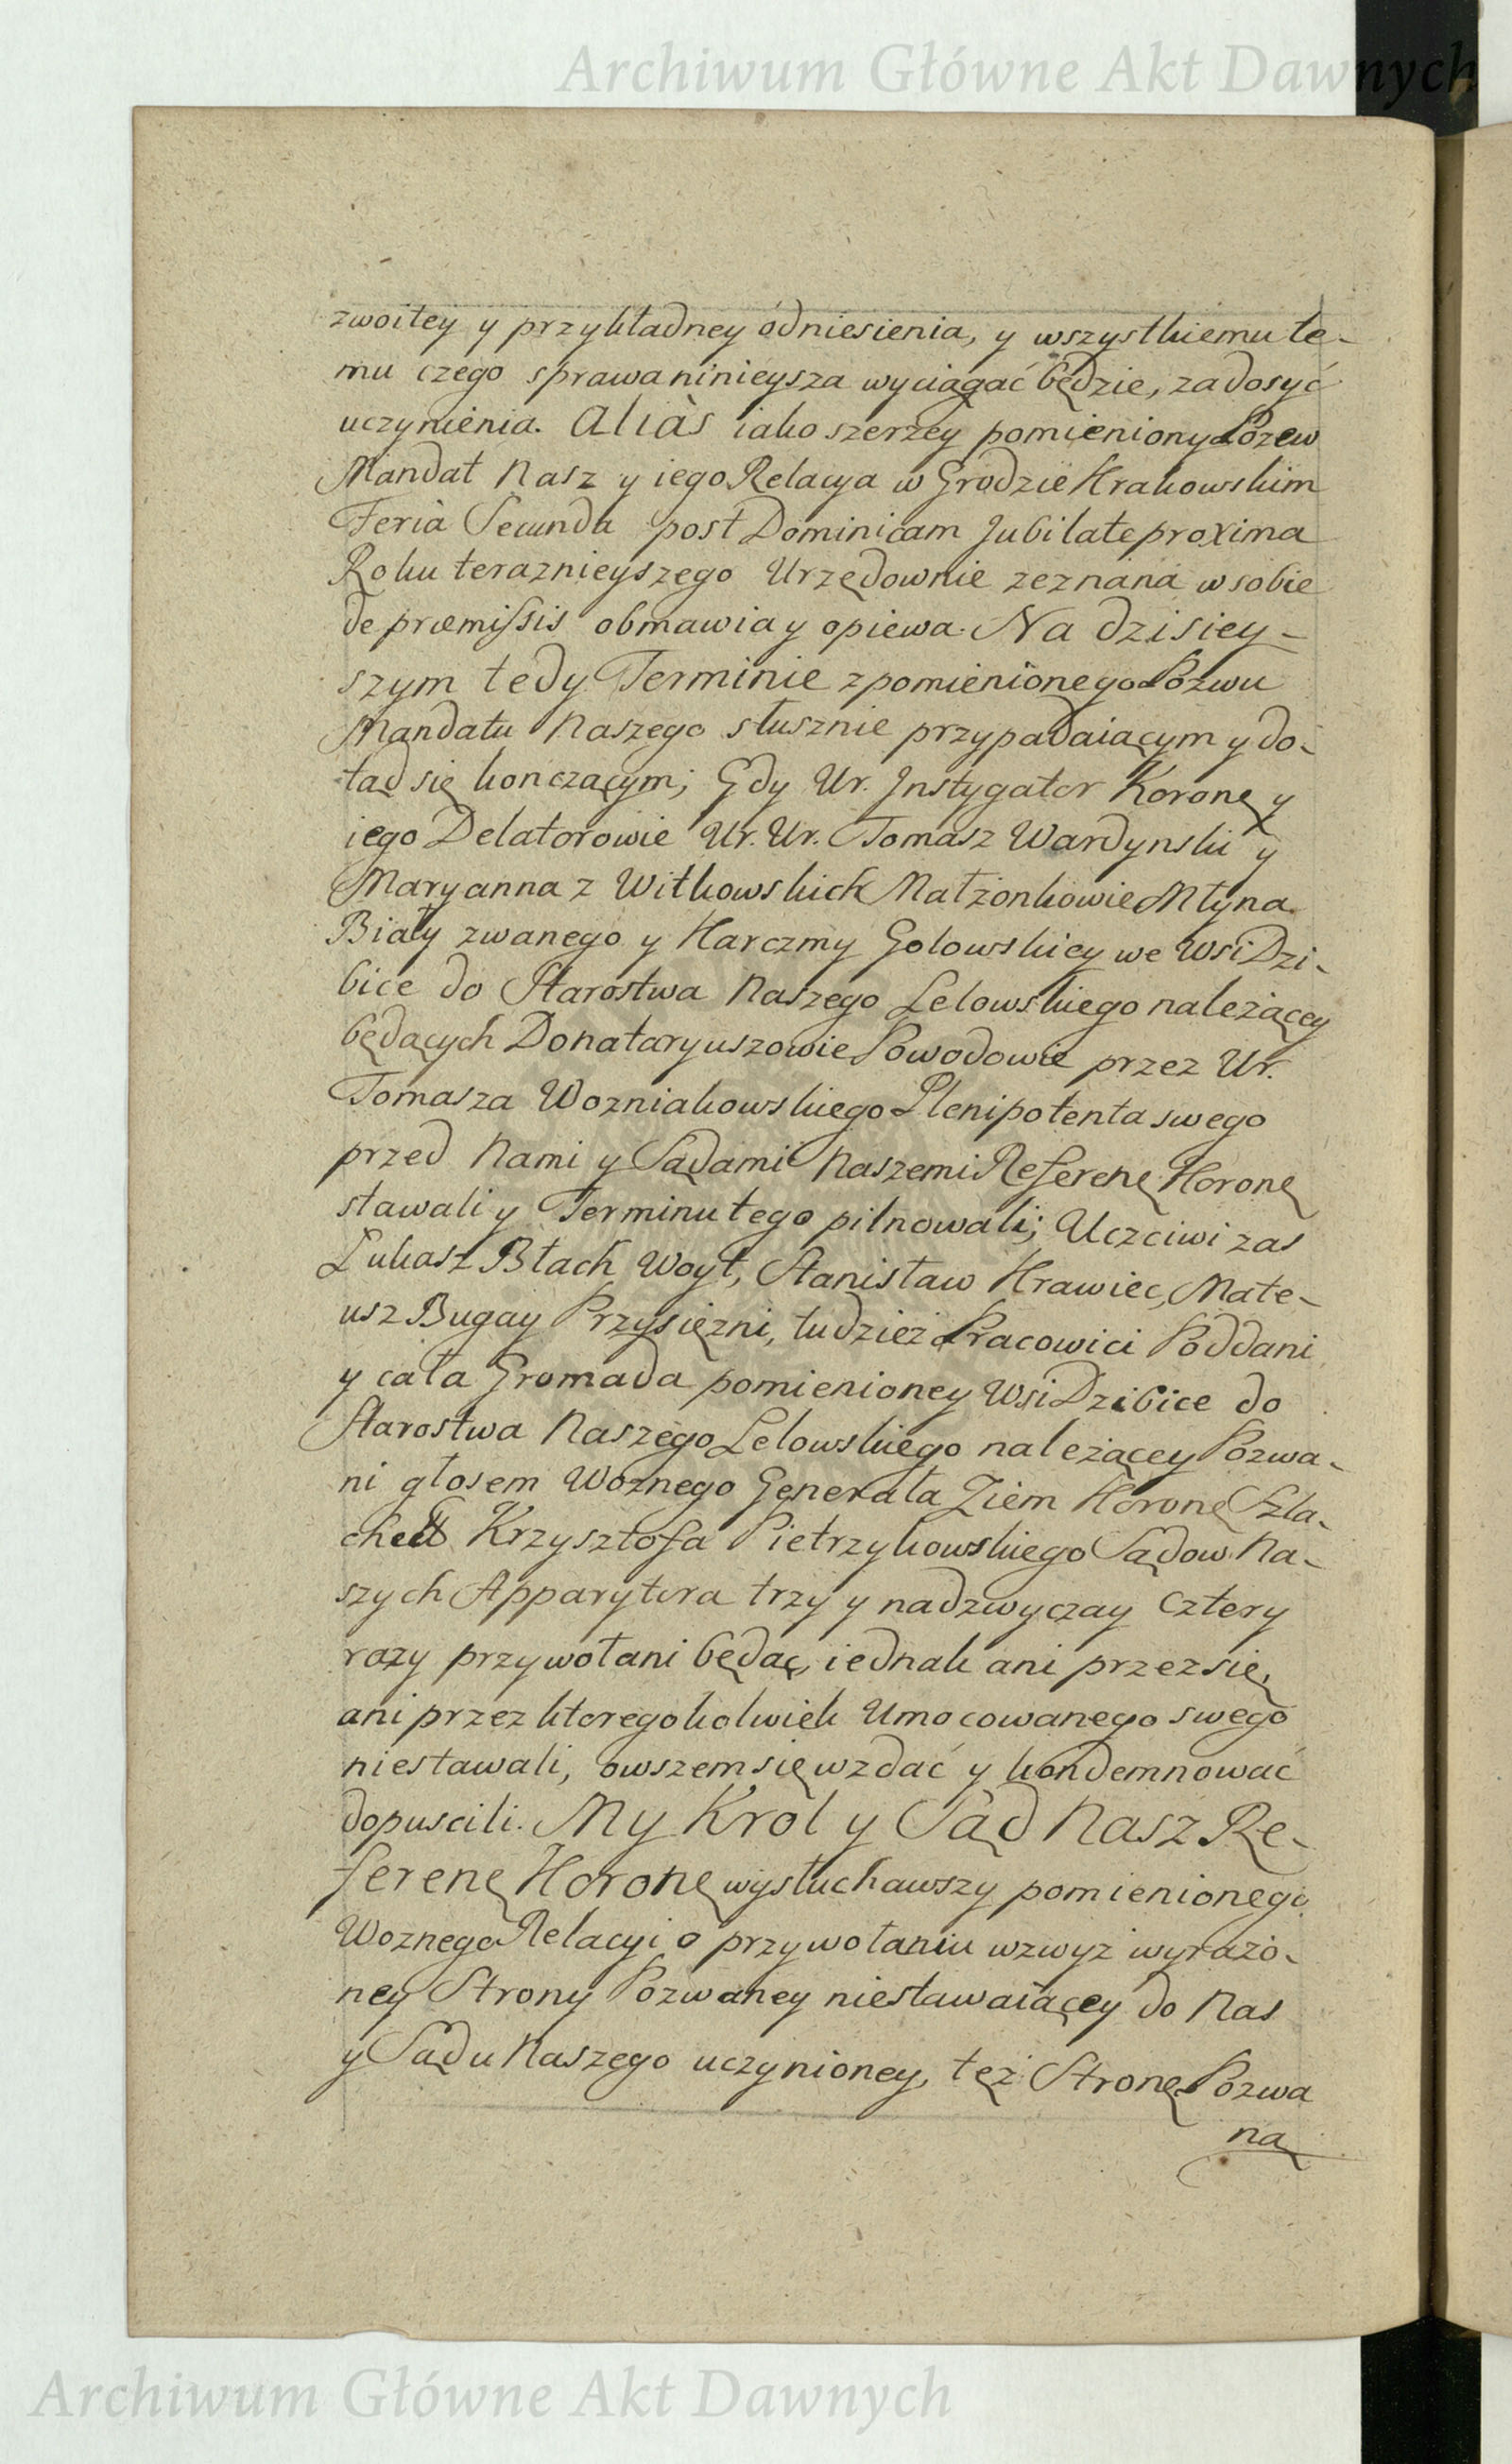 Archiwum Główne Akt Dawnych
zwoitey y przykładney odniesienia, y wszystkiemu te-
mu czego sprawa ninieysza wyciągać będzie, zadosyć
uczynienia. Aliàs iako szerzey pomieniony Pozew
Mandat Nasz y iego Relacya w Grodzie Krakowskim
Feria Secunda post Dominicam Jubilate proxima
Roku teraznieyszego Urzędownie zeznana w sobie
de præmissis obmawia y opiewa. Na dzisiey-
szym tedy Terminie z pomienionego Pozwu
Mandatu Naszego słusznie przypadaiącym y do-
tąd się kończącym; Gdy Ur. Instygator Koronę y
iego Delatorowie Ur. Ur. Tomasz Wardynski y
Maryanna z Witkowskich Małżonkowie Młyna
Biały zwanego y Karczmy Golowskiey we Wsi Dzi-
bice do Starostwa Naszego Lelowskiego należącey
będących Donataryuszowie Powodowie przez Ur.
Tomasza Wozniakowskiego Plenipotenta swego
przed Nami y Sądami Naszemi Referenę Koronę
stawali y Terminu tego pilnowali; Uczciwi zas
Łukasz Błach Woyt, Stanisław Krawiec, Mate-
usz Bugay Przysiężni, tudzież Pracowici Poddani
y cała Gromada pomienioney Wsi Dzibice do
Starostwa Naszego Lelowskiego należącey Pozwa-
ni głosem Woznego Generała Ziem Koronę Szla-
chett Krzysztofa Pietrzykowskiego Sądow Na-
szych Apparytora trzy y nadzwyczay cztery
razy przywołani będąc, iednak ani przez się,
ani przez ktoregokolwiek Umocowanego swego
niestawali, owszem się wzdać y kondemnować
dopuscili. My Krol y Sąd Nasz Re-
ferenę Koronę wysłuchawszy pomienionego
Woznego Relacyi o przywołaniu wzwyż wyrażo-
ney Strony Pozwaney niestawaiącey do Nas
y Sądu Naszego uczynioney, też Stronę Pozwa
ną
Archiwum Główne Akt Dawnych